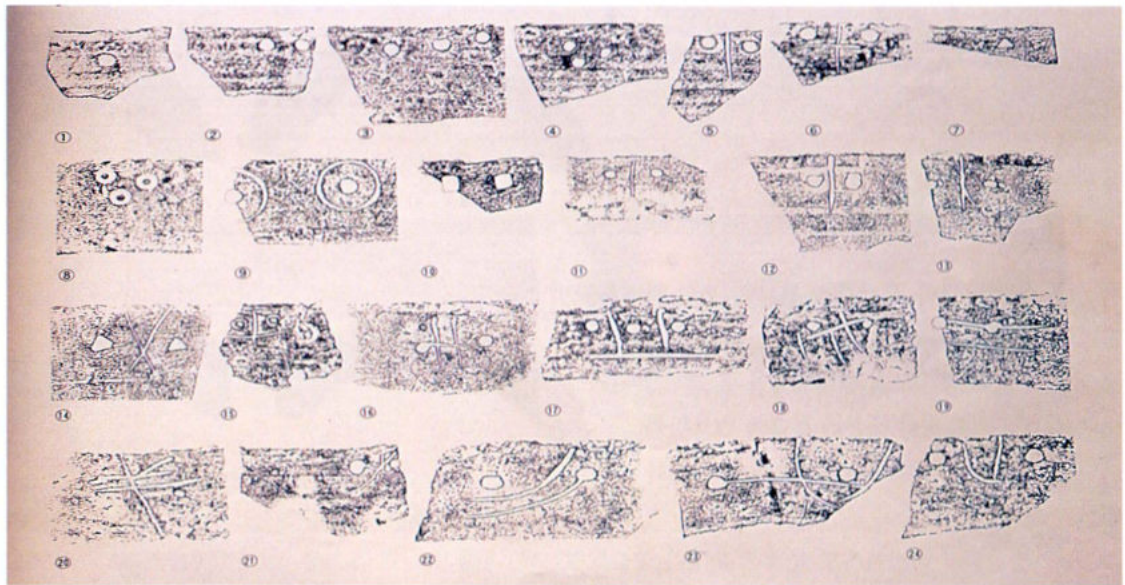 ① ② ③ ④ ⑤ ⑥ ⑦
⑧ ⑨ ⑩ ⑪ ⑫ ⑬
⑭ ⑮ ⑯ ⑰ ⑱ ⑲
⑳ ㉑ ㉒ ㉓ ㉔